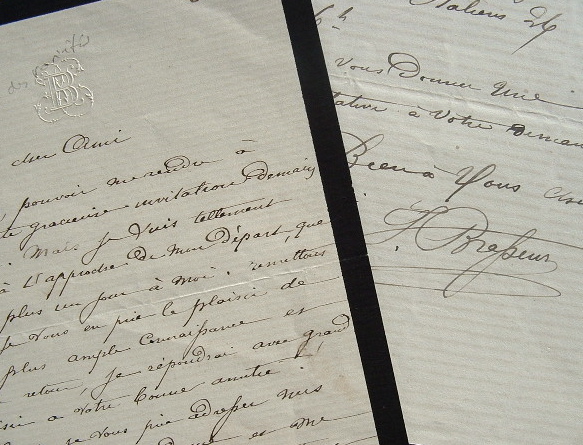 des
cher Ami
pouvoir me rendre à
gracieuse invitation Demain
Mais je suis tellement
à l'approche De mon Départ, que
plus un jour à moi. remettons
je vous en prie le plaisir de
plus ample Connaissance et
retour, je répondrai avec grand
à votre bonne amitié
je vous prie adresser mes
et me
Italiens 24
6 h
vous Donner Une
à votre
Bien à Vous
J Brasseur